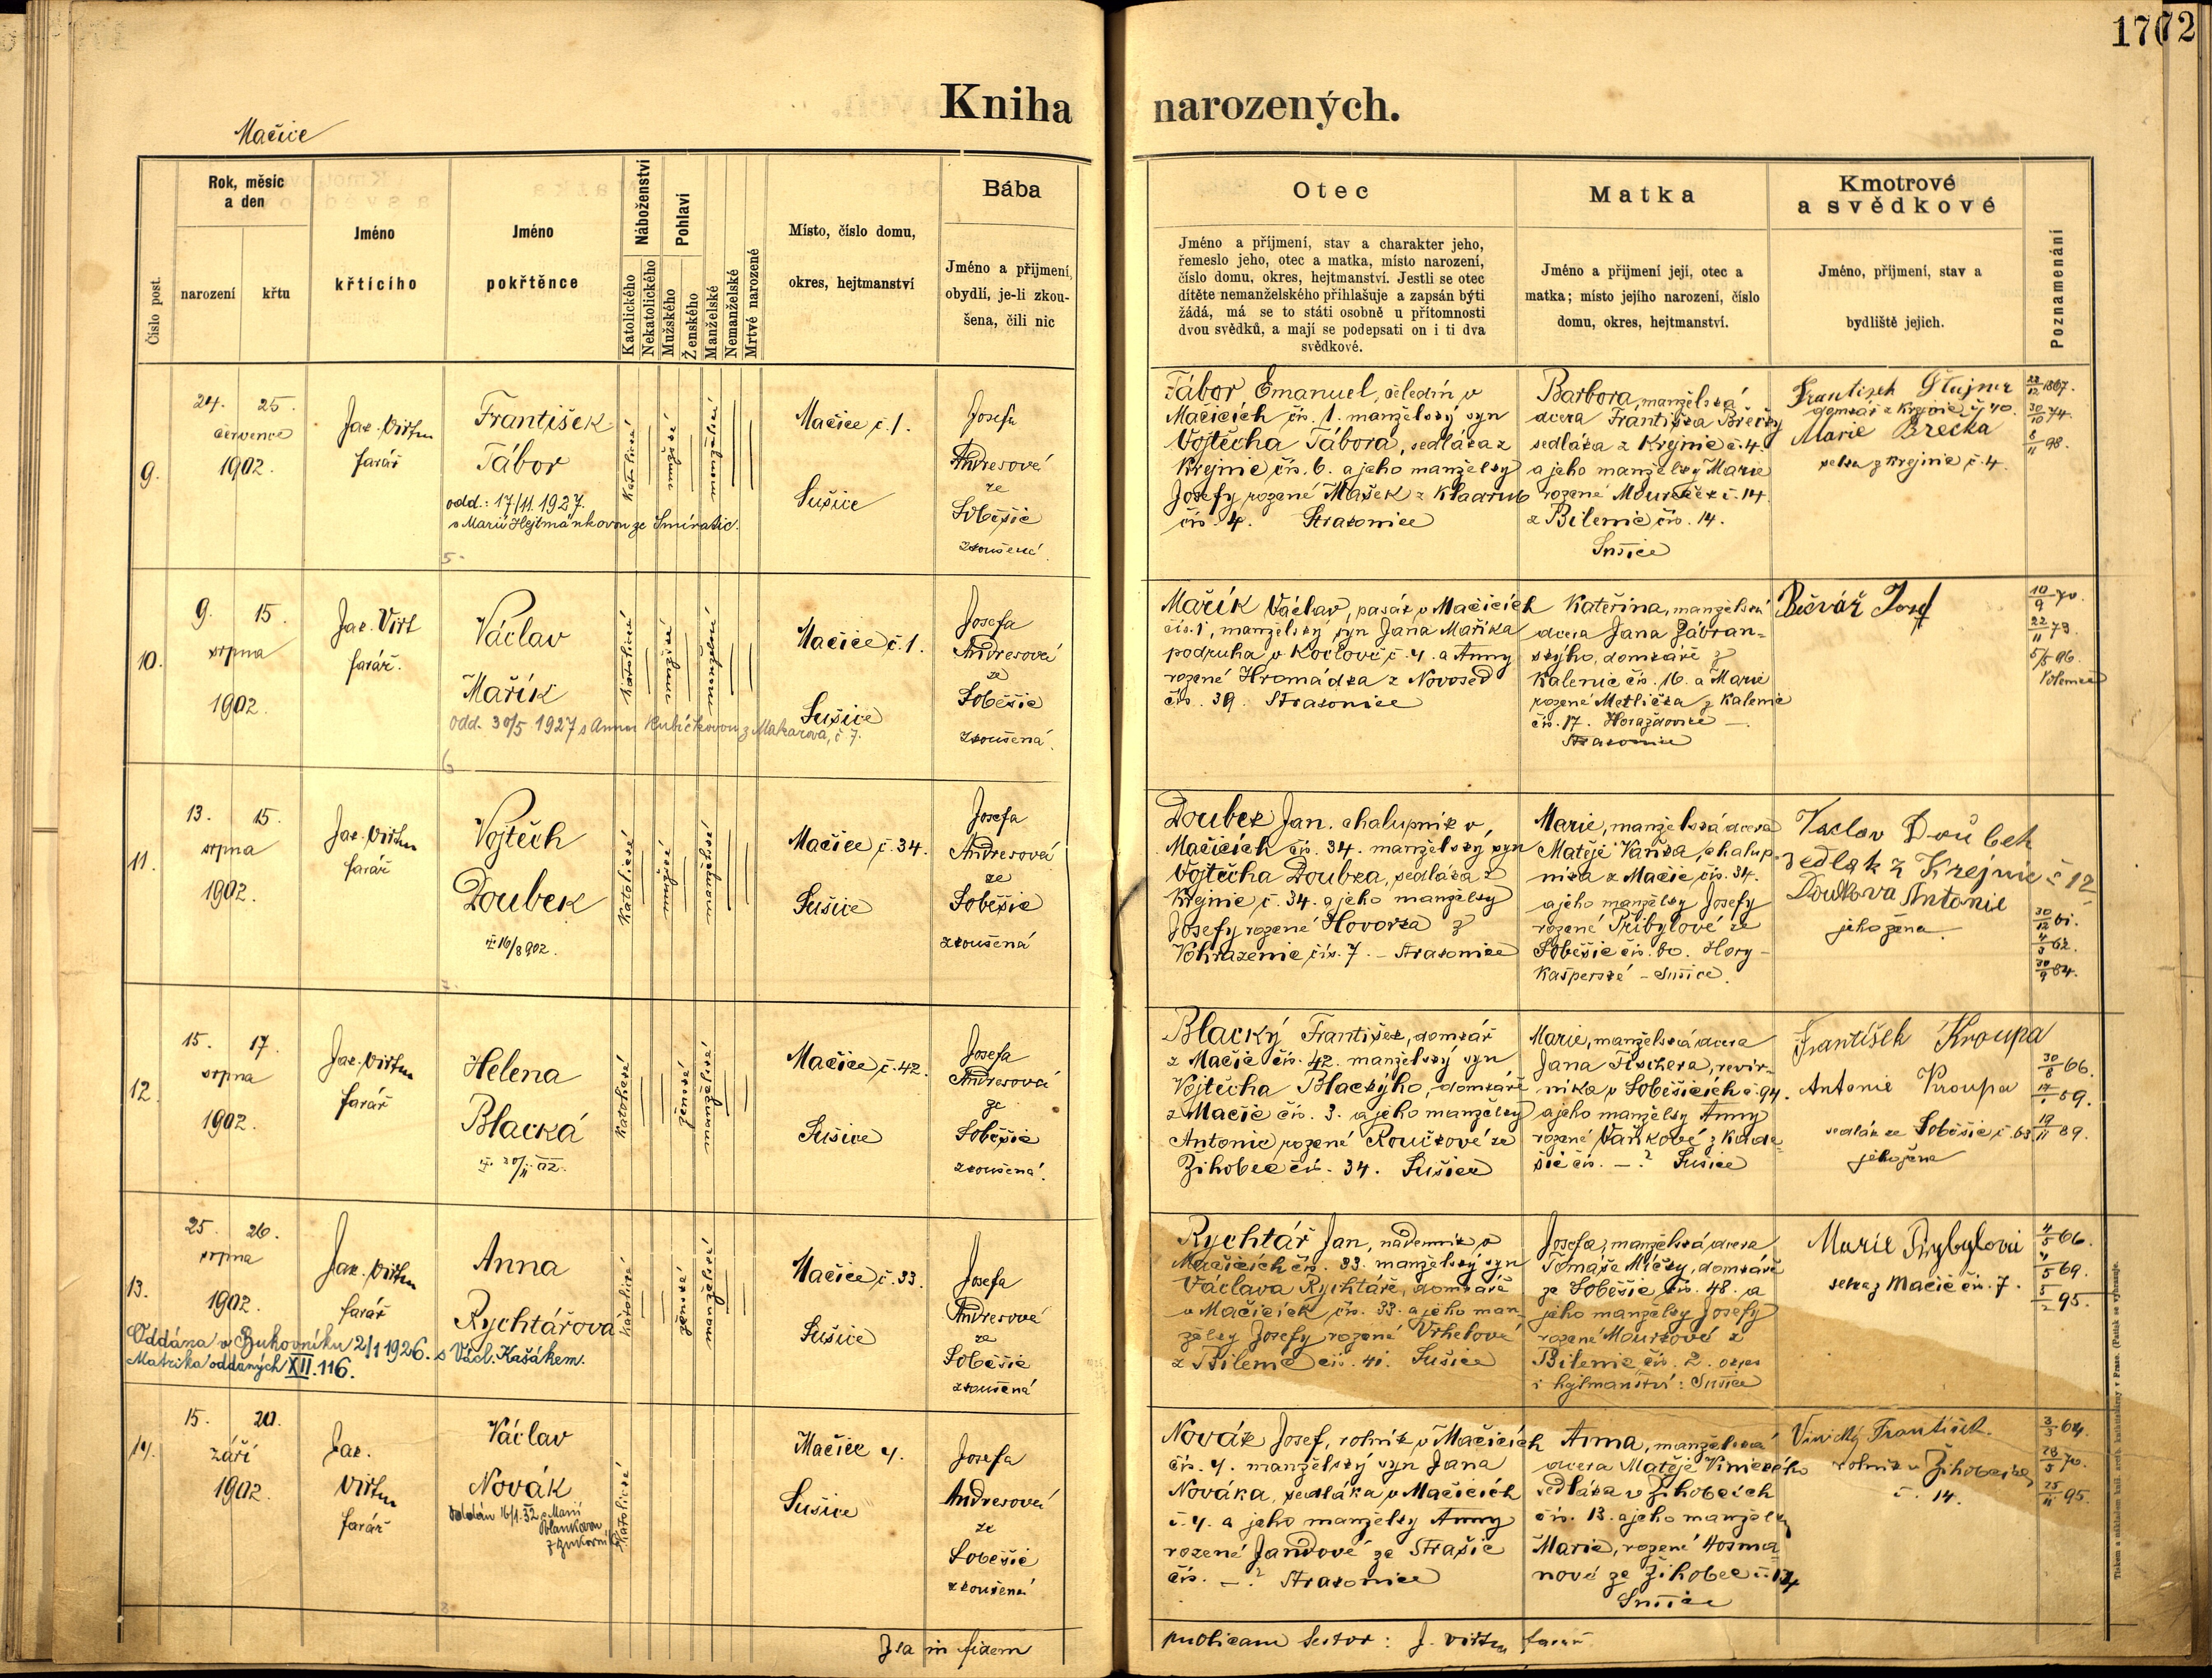 1702
Kniha narozených.
Mačice
Číslo post.
Rok, měsíc
a den
narození
křtu
Jméno
křtícího
Jméno
pokřtěnce
Náboženství
Katolického
Nekatolického
Pohlaví
Mužského
Ženského
Manželské
Nemanželské
Mrtvé narozené
Místo, číslo domu,
okres, hejtmanství
Bába
Jméno a příjmení,
obydlí, je-li zkou-
šena, čili nic
Otec
Jméno a příjmení, stav a charakter jeho,
řemeslo jeho, otec a matka, místo narození,
číslo domu, okres, hejtmanství. Jestli se otec
dítěte nemanželského přihlašuje a zapsán býti
žádá, má se to státi osobně u přítomnosti
dvou svědků, a mají se podepsati on i ti dva
svědkové.
Matka
Jméno a příjmení její, otec a
matka; místo jejího narození, číslo
domu, okres, hejtmanství.
Kmotrové
a svědkové
Jméno, příjmení, stav a
bydliště jejich.
Poznamenání
9.
24. 25.
července
1902.
Jak. Virtu
farář
František
Tábor
odd.: 17/11 1927.
s Marií Hejtmánkovou ze Smíratic.
5
Katolické
mužské
manželské
Mačice č. 1.
Sušice
Josefa
Andresová
ze
Soběšic
zkoušená.
Tábor Emanuel, čeledín v
Mačicích čís. 1. manželský syn
Vojtěcha Tábora, sedláka z
Krejnic čís. 6. a jeho manželky
Josefy rozené Mašek z Kladrub
čís. 4. Strakonice
Barbora, manželská
dcera Františka Brečky
sedláka z Krejnic č. 4.
a jeho manželky Marie
rozené č. 14.
z Bilenic čís. 14.
Sušice
František
domkář z Krejnic č. 40.
Marie Brečka
selka z Krejnic č. 4.
22/12 1867.
30/10 74.
8/11 98.
10.
9. 15.
srpna
1902.
Jak. Virt
farář.
Václav
Mařík
odd. 30/5 1927 s Annou Kubíčkovou z Makarova, č 7.
6
Katolické
mužské
manželské
Mačice č. 1.
Sušice
Josefa
Andresová
ze
Soběšic
zkoušená.
Mařík Václav, pasák v Mačicích
čís. 1, manželský syn Jana Maříka
podruha v Kočlově č. 4. a Anny
rozené Hromádka z Novosed
čís. 39. Strakonice
Kateřina, manželská
dcera Jana Zábran-
ského, domkáře z
Kalenic čís. 16. a Marie
rozené Metlička z Kalenic
čís. 17. Horažďovice –
Strakonice
Bečvář Josef
10/9 70.
22/11 73.
5/5 96.
11.
13. 15.
srpna
1902.
Jak. Virtu
farář
Vojtěch
Doubek
16/8 902.
Katolické
mužské
manželské
Mačice č. 34.
Sušice
Josefa
Andresová
ze
Soběšic
zkoušená
Doubek Jan, chalupník v
Mačicích čís. 34. manželský syn
Vojtěcha Doubka, sedláka z
Krejnic č. 34. a jeho manželky
Josefy rozené Hovorka z
Vohrazenic čís. 7. – Strakonice
Marie, manželská dcera
Matěje Vaňka, chalup-
níka z Mačic čís. 34.
a jeho manželky Josefy
rozené Přibylové ze
Soběšic čís. 60. Hory –
Kašperské – Sušice.
Vaclav Doubek
sedlak z Krejnic č 12
Doubkova Antonie
jeho žena.
30/12 61.
4/3 62.
30/9 84.
12.
15. 17.
srpna
1902.
Jak. Virtu
farář
Helena
Blacká
20/II 02.
Katolické
ženské
manželské
Mačice č. 42.
Sušice
Josefa
Andresová
ze
Soběšic
zkoušená.
Blacký František, domkář
z Mačic čís. 42. manželský syn
Vojtěcha Blackýho, domkáře
z Mačic čís. 3. a jeho manželky
Antonie rozené Roučkové ze
Žihobec čís. 34. Sušice
Marie, manželská dcera
Jana Fischera, revír-
níka v Soběšicích č. 94.
a jeho manželky Anny
rozené Vaňkové z Kade-
šic čís. –? Sušice
František Kroupa
Antonie Kroupa
sedlák ze Soběšic č. 63
jeho žena
30/8 66.
17/1 69.
19/11 89.
13.
25. 26.
srpna
1902.
Jak. Virtu
farář
Anna
Rychtářova
Oddána v Bukovníku 2/1 1926. s Václ. Kašákem.
Matrika oddaných XII. 116.
Katolické
ženské
manželské
Mačice č. 33.
Sušice
Josefa
Andresová
ze
Soběšic
zkoušená
Rychtář Jan, nádenník v
Mačicích čís. 33. manželský syn
Václava Rychtáře, domkáře
v Mačicích čís. 33. a jeho man-
želky Josefy rozené Vrhelové
z Bilenic čís. 41. Sušice
Josefa, manželská dcera
Tomáše Mičky, domkáře
ze Soběšic čís. 48. a
jeho manželky Josefy
rozené Mourkové z
Bilenic čís. 2. okres
i hejtmanství: Sušice
Marie Přybylová
selka z Mačic čís. 7.
4/5 66.
4/5 69.
5/2 95.
14.
15. 20.
září
1902.
Jak.
Virtu
farář
Václav
Novák
Oddán 16/1. 32 s Marií
Katolické
Mačice 4.
Sušice
Josefa
Andresová
ze
Soběšic
zkoušená
Novák Josef, rolník v Mačicích
čís. 4. manželský syn Jana
Nováka, sedláka v Mačicích
č. 4. a jeho manželky Anny
rozené Jandové ze Strašic
čís. –? Strakonice
Anna, manželská
dcera Matěje Vinického
sedláka v Žihobcích
čís. 13. a jeho manželky
Marie, rozené Hosma-
nové ze Žihobec č. 14
Sušice
Vinický František.
rolník v Žihobcích
č. 14.
3/3 64.
28/5 70.
25/11 95.
Jsa in fidem publicam testor: J. Virtu farář
Tiskem a nákladem kníž. arcib. knihtiskárny v Praze. (Patisk se vyhrazuje.